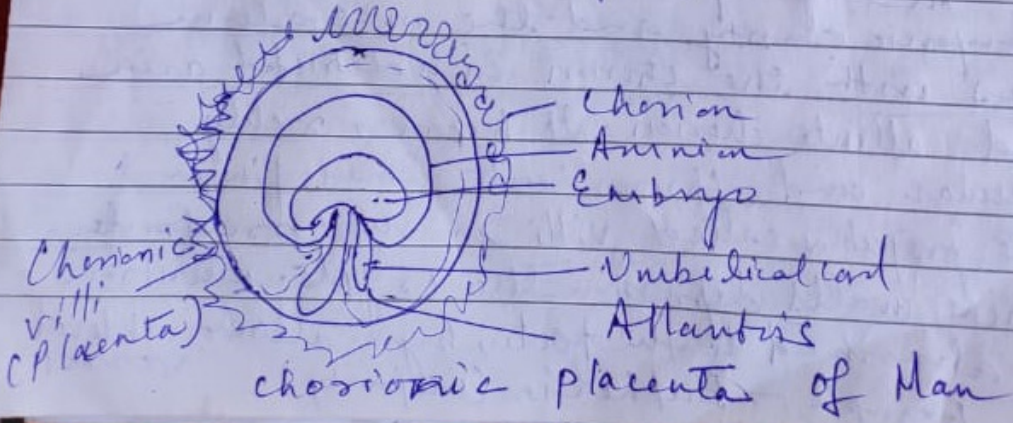 Chorion
Amnion
Embryo
Umbelical cord
Allantois
Chorionic
villi
(Placenta)
chorionic placenta of Man